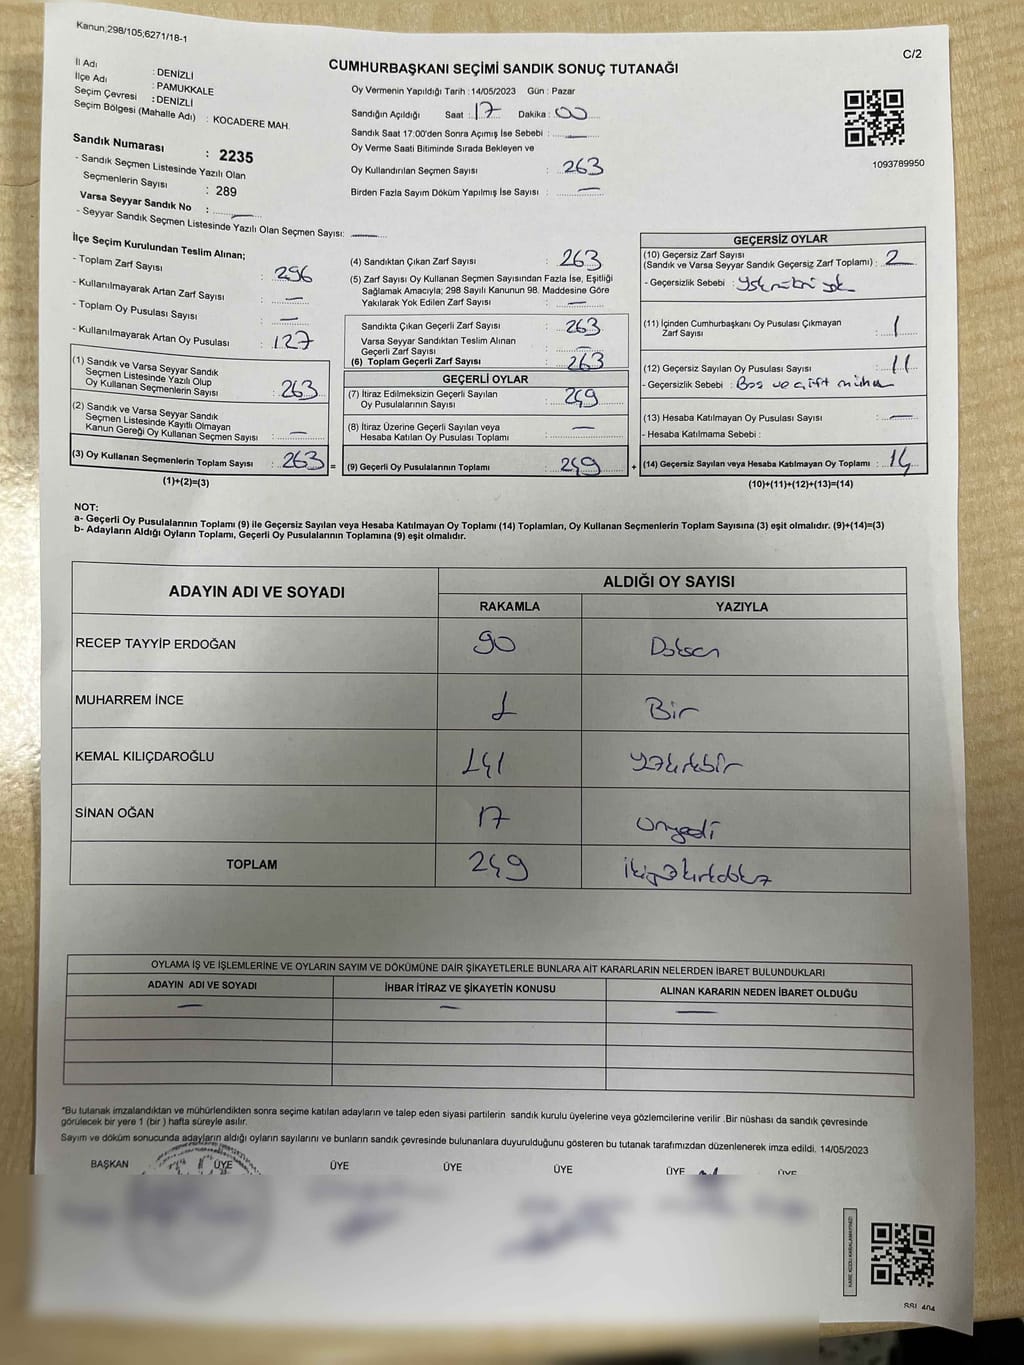 Kanun,298/105;6271/18-1
C/2
CUMHURBAŞKANI SEÇİMİ SANDIK SONUÇ TUTANAĞI
İl Adı : DENİZLİ
İlçe Adı : PAMUKKALE
Seçim Çevresi : DENİZLİ
Seçim Bölgesi (Mahalle Adı) : KOCADERE MAH.
Sandık Numarası : 2235
- Sandık Seçmen Listesinde Yazılı Olan
Seçmenlerin Sayısı : 289
Varsa Seyyar Sandık No : —
- Seyyar Sandık Seçmen Listesinde Yazılı Olan Seçmen Sayısı: —
Oy Vermenin Yapıldığı Tarih : 14/05/2023 Gün : Pazar
Sandığın Açıldığı Saat : 17 Dakika : 00
Sandık Saat 17:00'den Sonra Açımış İse Sebebi : —
Oy Verme Saati Bitiminde Sırada Bekleyen ve
Oy Kullandırılan Seçmen Sayısı : 263
Birden Fazla Sayım Döküm Yapılmış İse Sayısı : —
1093789950
İlçe Seçim Kurulundan Teslim Alınan;
- Toplam Zarf Sayısı : 296
- Kullanılmayarak Artan Zarf Sayısı : —
- Toplam Oy Pusulası Sayısı : —
- Kullanılmayarak Artan Oy Pusulası : 127
(1) Sandık ve Varsa Seyyar Sandık
Seçmen Listesinde Yazılı Olup
Oy Kullanan Seçmenlerin Sayısı : 263
(2) Sandık ve Varsa Seyyar Sandık
Seçmen Listesinde Kayıtlı Olmayan
Kanun Gereği Oy Kullanan Seçmen Sayısı : —
(3) Oy Kullanan Seçmenlerin Toplam Sayısı : 263 =
(1)+(2)=(3)
(4) Sandıktan Çıkan Zarf Sayısı : 263
(5) Zarf Sayısı Oy Kullanan Seçmen Sayısından Fazla İse, Eşitliği
Sağlamak Amacıyla; 298 Sayılı Kanunun 98. Maddesine Göre
Yakılarak Yok Edilen Zarf Sayısı : —
Sandıkta Çıkan Geçerli Zarf Sayısı : 263
Varsa Seyyar Sandıktan Teslim Alınan
Geçerli Zarf Sayısı : —
(6) Toplam Geçerli Zarf Sayısı : 263
GEÇERLİ OYLAR
(7) İtiraz Edilmeksizin Geçerli Sayılan
Oy Pusulalarının Sayısı : 249
(8) İtiraz Üzerine Geçerli Sayılan veya
Hesaba Katılan Oy Pusulası Toplamı : —
(9) Geçerli Oy Pusulalarının Toplamı : 249 +
GEÇERSİZ OYLAR
(10) Geçersiz Zarf Sayısı
(Sandık ve Varsa Seyyar Sandık Geçersiz Zarf Toplamı) : 2
- Geçersizlik Sebebi :
(11) İçinden Cumhurbaşkanı Oy Pusulası Çıkmayan
Zarf Sayısı : 1
(12) Geçersiz Sayılan Oy Pusulası Sayısı : 11
- Geçersizlik Sebebi : Boş ve çift mühür
(13) Hesaba Katılmayan Oy Pusulası Sayısı : —
- Hesaba Katılmama Sebebi :
(14) Geçersiz Sayılan veya Hesaba Katılmayan Oy Toplamı : 14
(10)+(11)+(12)+(13)=(14)
NOT:
a- Geçerli Oy Pusulalarının Toplamı (9) ile Geçersiz Sayılan veya Hesaba Katılmayan Oy Toplamı (14) Toplamları, Oy Kullanan Seçmenlerin Toplam Sayısına (3) eşit olmalıdır. (9)+(14)=(3)
b- Adayların Aldığı Oyların Toplamı, Geçerli Oy Pusulalarının Toplamına (9) eşit olmalıdır.
ADAYIN ADI VE SOYADI ALDIĞI OY SAYISI
RAKAMLA YAZIYLA
RECEP TAYYİP ERDOĞAN 90 Doksan
MUHARREM İNCE 1 Bir
KEMAL KILIÇDAROĞLU 141 Yüzkırkbir
SİNAN OĞAN 17 Onyedi
TOPLAM 249 İkiyüzkırkdokuz
OYLAMA İŞ VE İŞLEMLERİNE VE OYLARIN SAYIM VE DÖKÜMÜNE DAİR ŞİKAYETLERLE BUNLARA AİT KARARLARIN NELERDEN İBARET BULUNDUKLARI
ADAYIN ADI VE SOYADI İHBAR İTİRAZ VE ŞİKAYETİN KONUSU ALINAN KARARIN NEDEN İBARET OLDUĞU
— — —
"Bu tutanak imzalandıktan ve mühürlendikten sonra seçime katılan adayların ve talep eden siyasi partilerin sandık kurulu üyelerine veya gözlemcilerine verilir .Bir nüshası da sandık çevresinde
görülecek bir yere 1 (bir ) hafta süreyle asılır.
Sayım ve döküm sonucunda adayların aldığı oyların sayılarını ve bunların sandık çevresinde bulunanlara duyurulduğunu gösteren bu tutanak tarafımızdan düzenlenerek imza edildi. 14/05/2023
BAŞKAN ÜYE ÜYE ÜYE ÜYE ÜYE ÜYE
KARE KODU KARALAMAYINIZ!